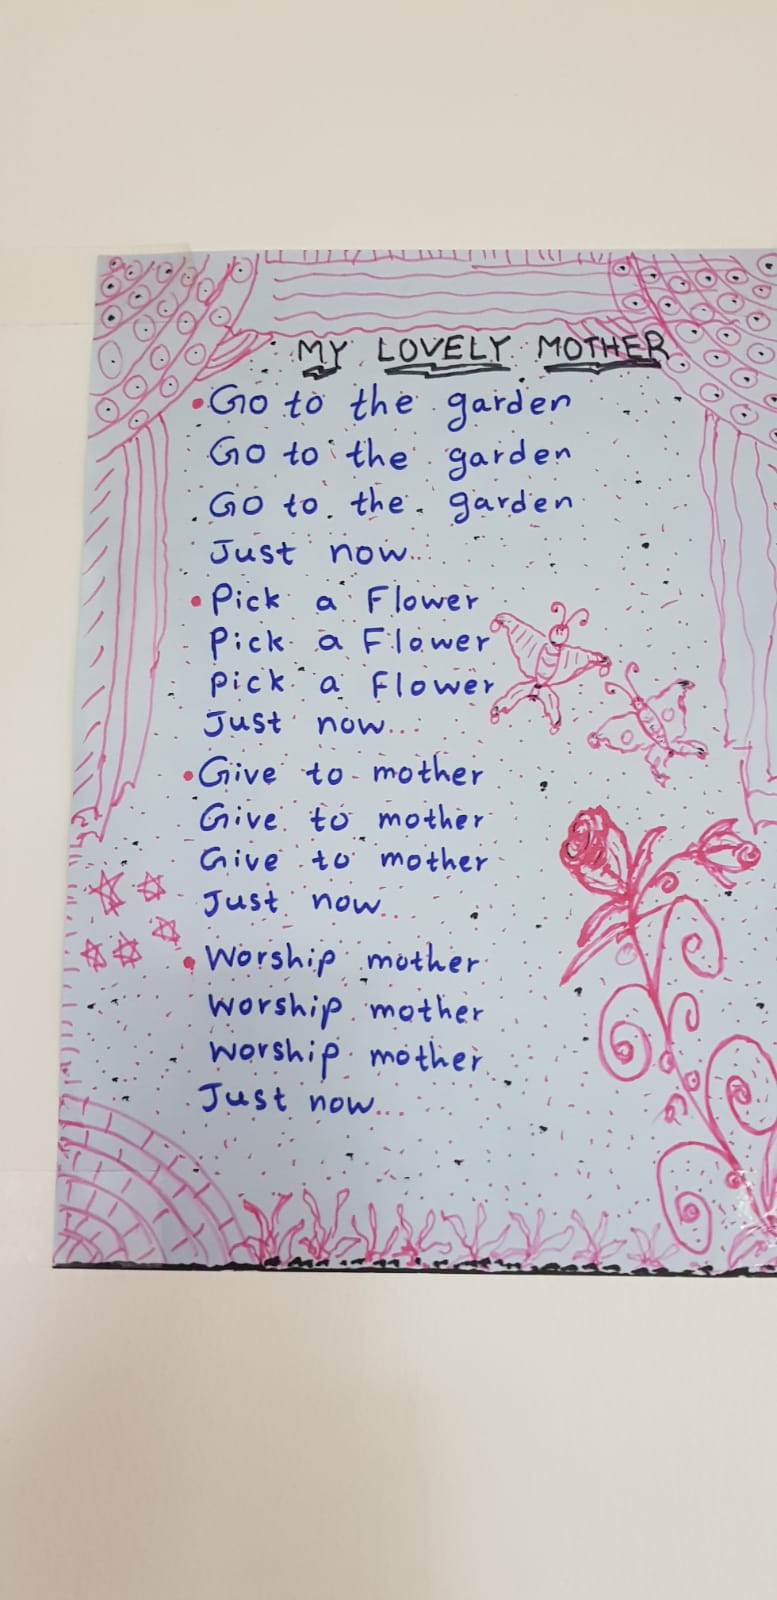 MY LOVELY MOTHER
Go to the garden
Go to the garden
Go to the garden
Just now...
Pick a Flower
Pick a Flower
Pick a Flower
Just now...
Give to mother
Give to mother
Give to mother
Just now...
Worship mother
Worship mother
Worship mother
Just now...